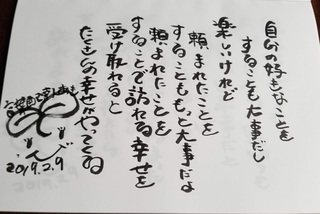 自分の好きなことを
することも大事だし
楽しいけれど
頼まれたことを
することももっと大事だよ
頼まれたことを
することで訪れる幸せを
受け取れると
たくさんの幸せがやってくる
2019.2.9